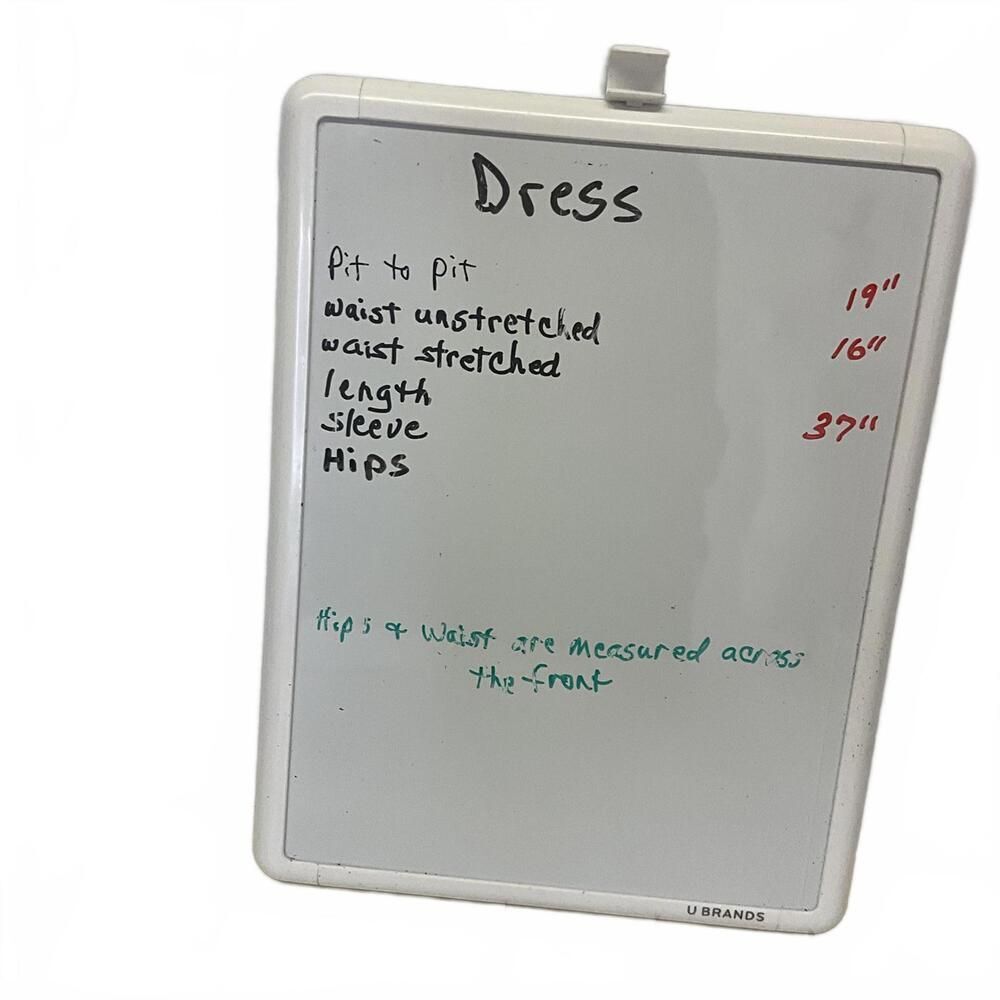 Dress
Pit to pit 19"
waist unstretched 16"
waist stretched
length 37"
sleeve
Hips
Hips & Waist are measured across
the front
U BRANDS